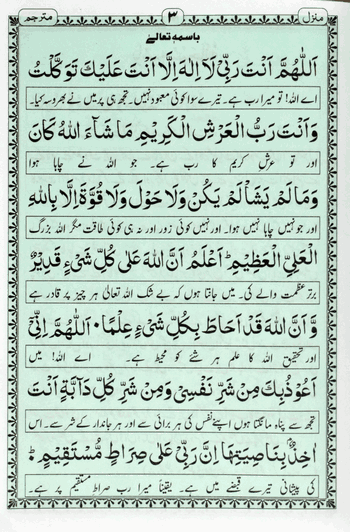 منزل ۳ مترجم
باسمہ تعالیٰ
اَللّٰهُمَّ اَنْتَ رَبِّیْ لَآ اِلٰهَ اِلَّا اَنْتَ عَلَیْكَ تَوَكَّلْتُ
اے اللہ! تو میرا رب ہے۔ تیرے سوا کوئی معبود نہیں۔ تجھ ہی پر میں نے بھروسہ کیا۔
وَاَنْتَ رَبُّ الْعَرْشِ الْكَرِیْمِ مَا شَآءَ اللّٰهُ كَانَ
اور تو عرش کریم کا رب ہے۔ جو اللہ نے چاہا ہوا
وَمَا لَمْ یَشَاْ لَمْ یَكُنْ وَلَا حَوْلَ وَلَا قُوَّةَ اِلَّا بِاللّٰهِ
اور جو نہیں چاہا نہیں ہوا۔ اور نہیں کوئی زور اور نہ ہی کوئی طاقت مگر اللہ بزرگ
الْعَلِیِّ الْعَظِیْمِ ؕ اَعْلَمُ اَنَّ اللّٰهَ عَلٰی كُلِّ شَیْءٍ قَدِیْرٌ
برتر عظمت والے کی۔ میں جانتا ہوں کہ بے شک اللہ تعالیٰ ہر چیز پر قادر ہے
وَّ اَنَّ اللّٰهَ قَدْ اَحَاطَ بِكُلِّ شَیْءٍ عِلْمًا ۰ اَللّٰهُمَّ اِنِّیْٓ
اور تحقیق اللہ کا علم ہر شئے کو محیط ہے۔ اے اللہ! میں
اَعُوْذُ بِكَ مِنْ شَرِّ نَفْسِیْ وَمِنْ شَرِّ كُلِّ دَآبَّةٍ اَنْتَ
تجھ سے پناہ مانگتا ہوں اپنے نفس کی ہر برائی سے اور ہر جاندار کے شر سے۔ اس
اٰخِذٌۢ بِنَاصِیَتِهَا اِنَّ رَبِّیْ عَلٰی صِرَاطٍ مُّسْتَقِیْمٍ ؕ
کی پیشانی تیرے قبضے میں ہے۔ یقیناً میرا رب صراط مستقیم پر ہے۔